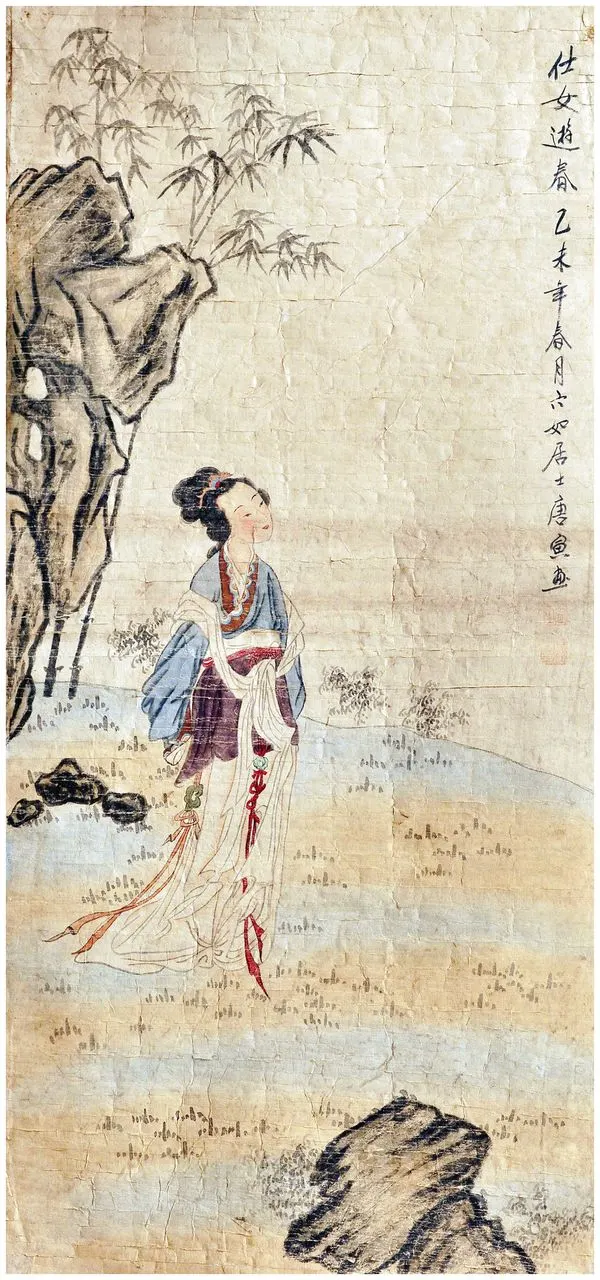 仕女遊春乙未年春月六如居士唐寅画